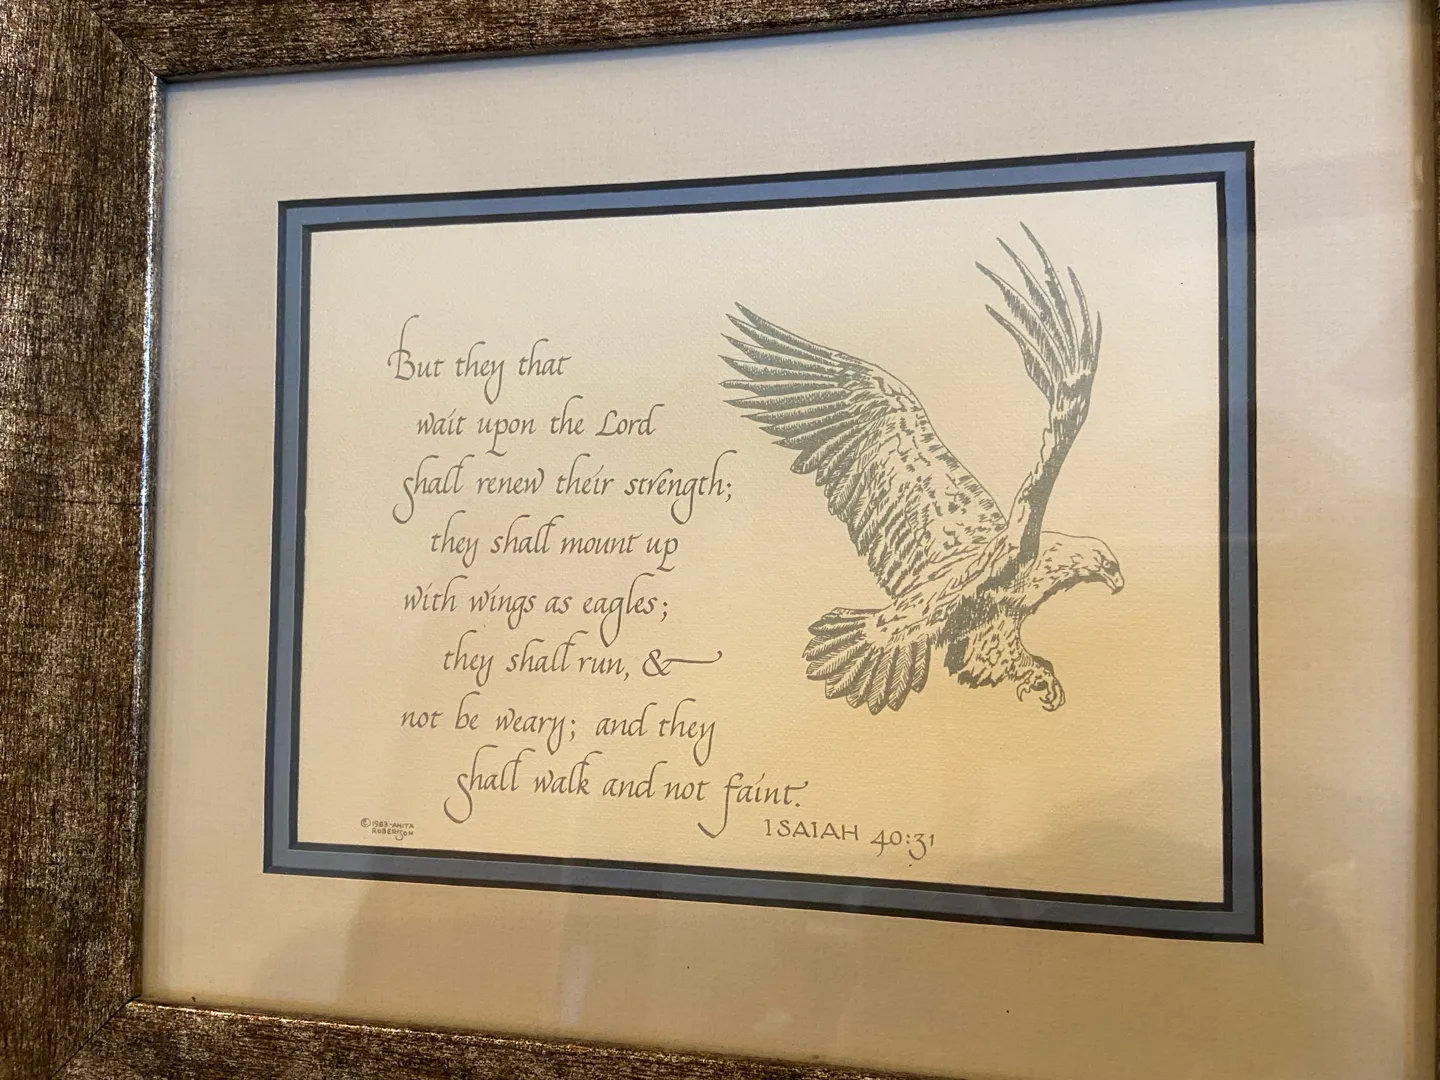 But they that
wait upon the Lord
shall renew their strength;
they shall mount up
with wings as eagles;
they shall run, &
not be weary; and they
shall walk and not faint.
ISAIAH 40:31
© 1983 · ANITA
ROBERTSON